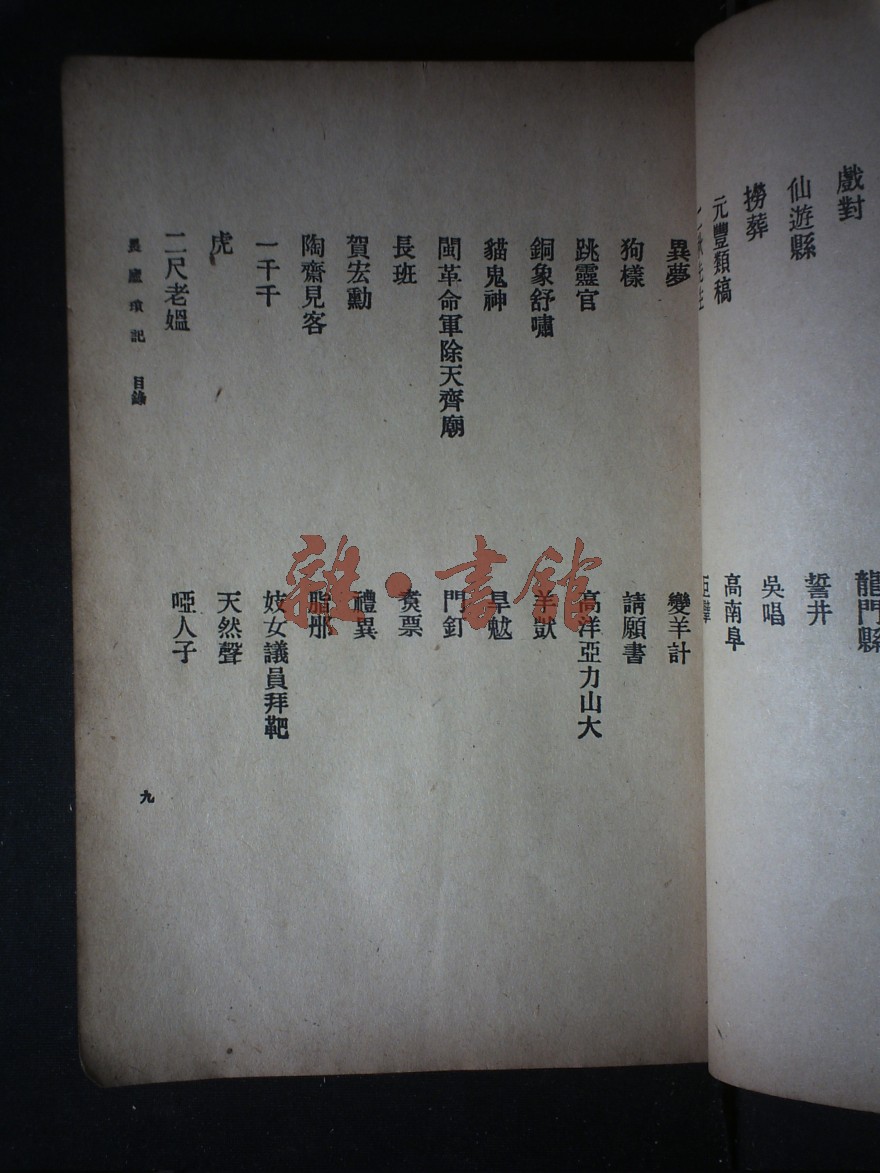 戲對
龍門縣
仙遊縣
誓井
撈葬
吳唱
元豐類稿
高南阜
異夢
變羊計
狗樣
請願書
跳靈官
高洋亞力山大
銅象舒嘯
羊
貓鬼神
旱魃
閩革命軍除天齊廟
門釘
長班
票
賀宏勳
禮異
陶齋見客
脂
一千千
妓女議員拜靶
虎
天然聲
二尺老媼
啞人子
畏廬瑣記 目錄
九
雜·書館